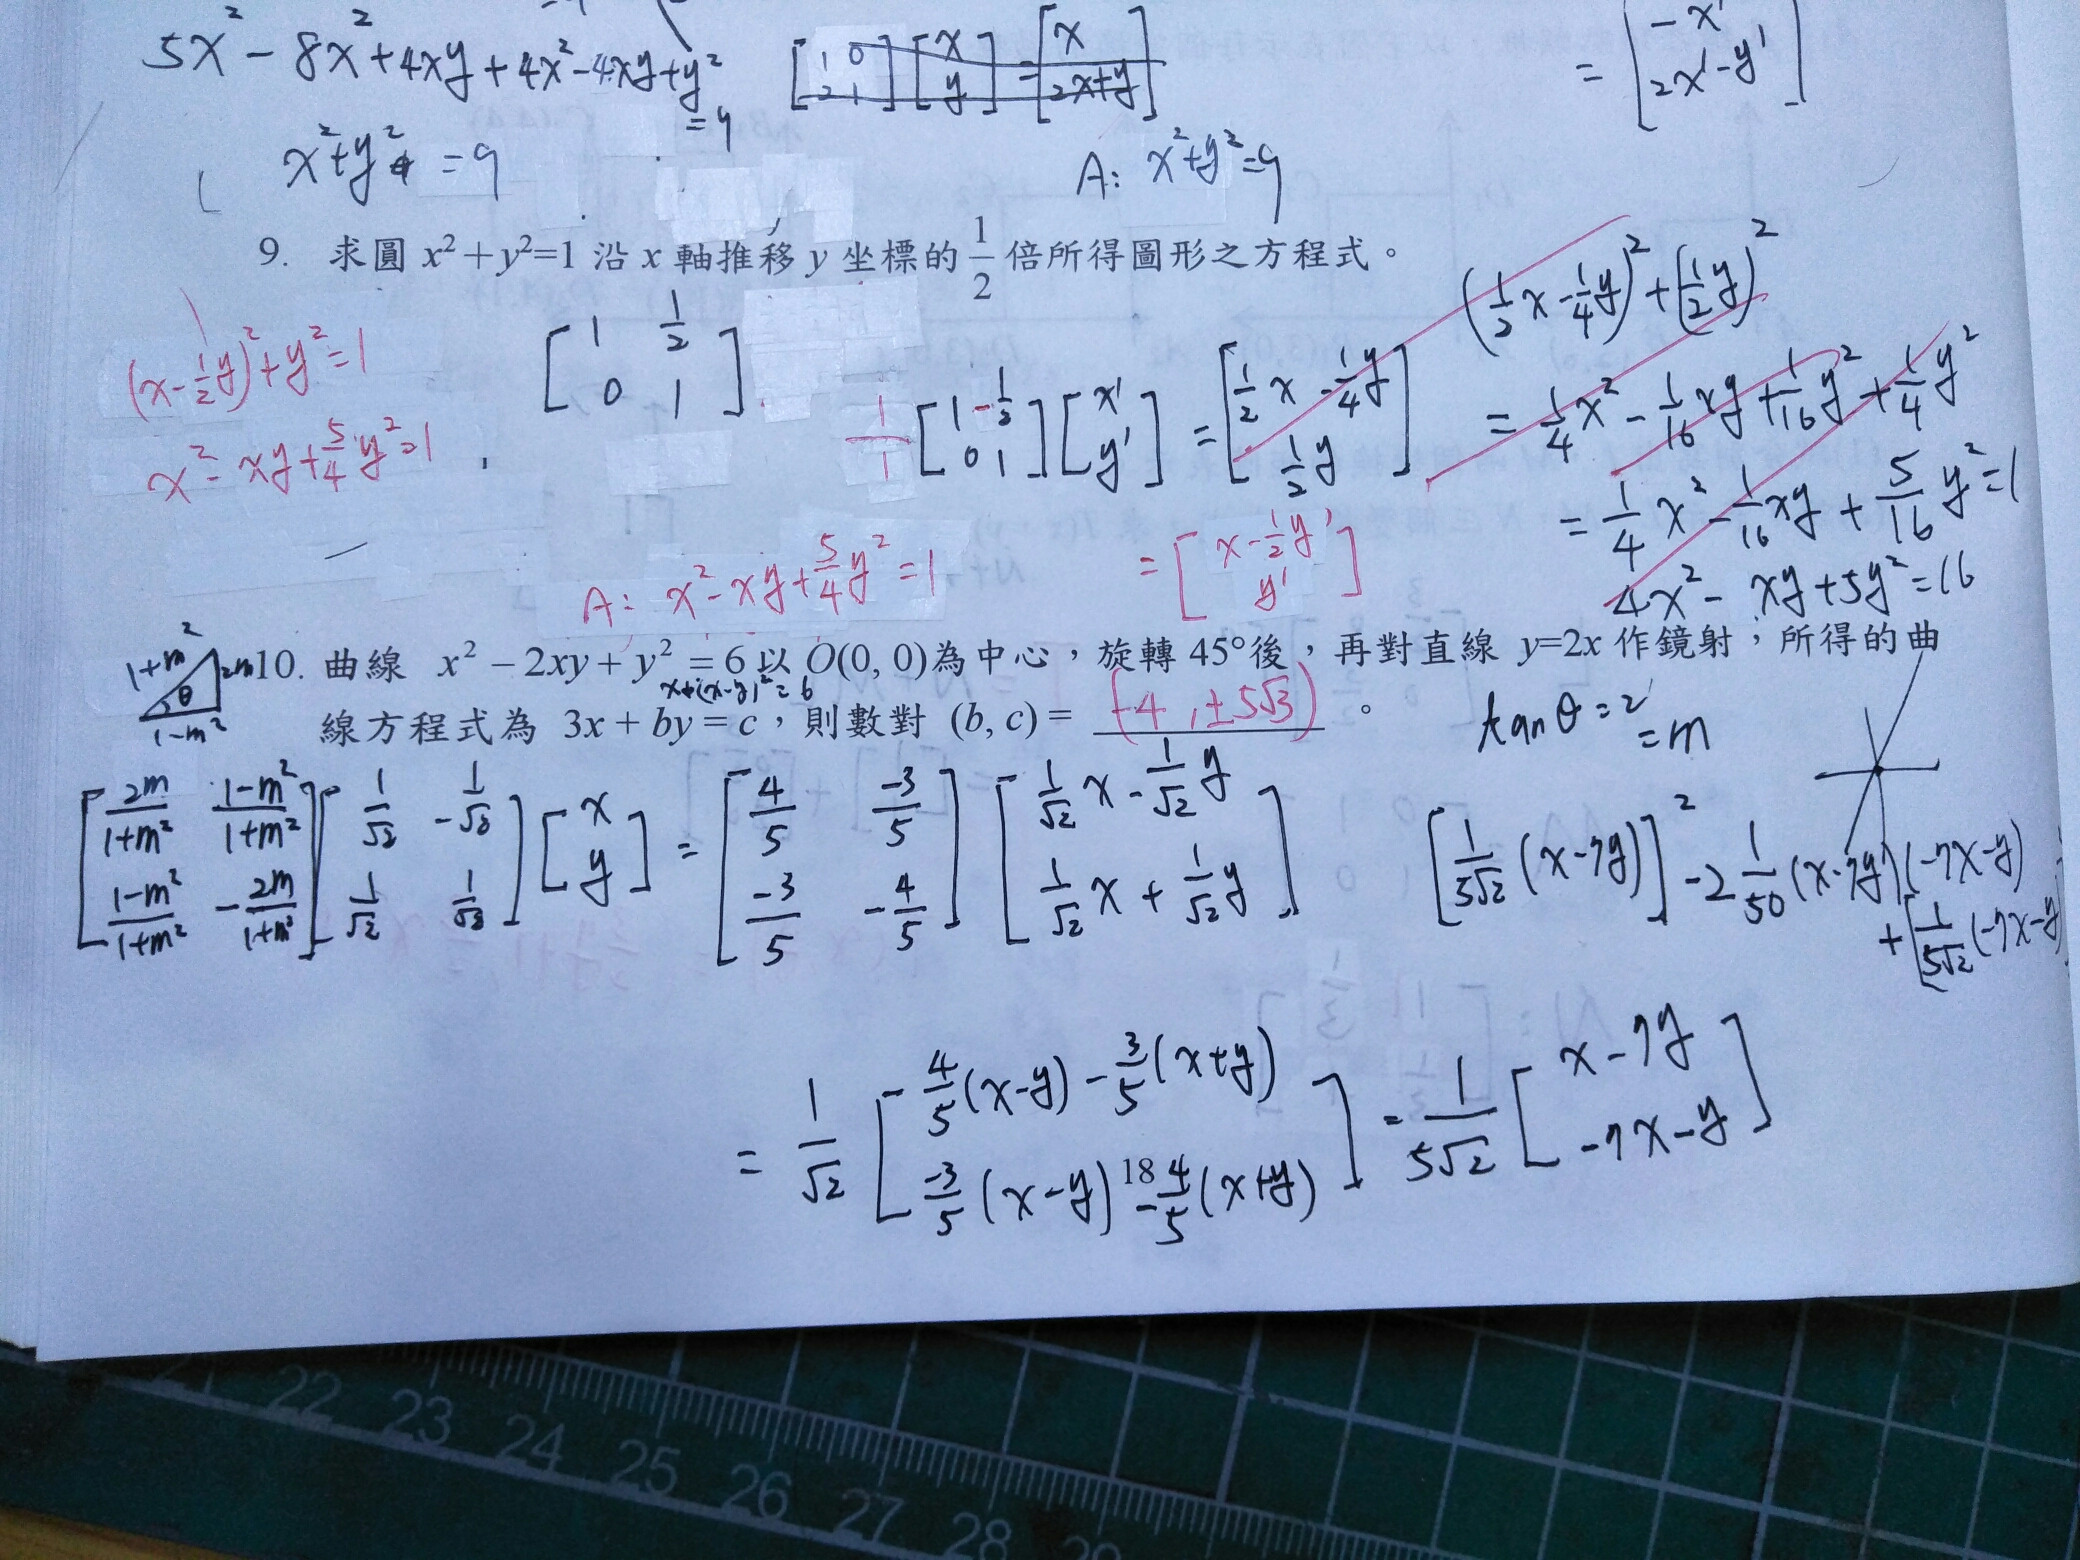 5x² - 8x² + 4xy + 4x² - 4xy + y² = 9
[1 0; 2 1] [x; y] = [x; 2x+y]
= [-x'; 2x'-y']
x² + y² = 9
A: x² + y² = 9
9. 求圓 x²+y²=1 沿 x 軸推移 y 坐標的 1/2 倍所得圖形之方程式。
(1/2 x - 1/4 y)² + (1/2 y)²
(x - 1/2 y)² + y² = 1
[1 1/2; 0 1]
1/1 [1 -1/2; 0 1] [x'; y'] = [1/2 x - 1/4 y; 1/2 y]
= 1/4 x² - 1/16 xy + 1/16 y² + 1/4 y²
x² - xy + 5/4 y² = 1
= 1/4 x² - 1/16 xy + 5/16 y² = 1
= [x - 1/2 y'; y']
A: x² - xy + 5/4 y² = 1
4x² - xy + 5y² = 16
1+m² 2m θ 1-m²
10. 曲線 x² − 2xy + y² = 6 以 O(0, 0)為中心，旋轉 45°後，再對直線 y=2x 作鏡射，所得的曲
(x-y)² = 6
線方程式為 3x + by = c，則數對 (b, c) = (-4, ±5√3)。
tanθ = 2 = m
[2m/1+m² 1-m²/1+m²; 1-m²/1+m² -2m/1+m²] [1/√2 -1/√2; 1/√2 1/√2] [x; y] = [4/5 -3/5; -3/5 -4/5] [1/√2 x - 1/√2 y; 1/√2 x + 1/√2 y]
[1/5√2 (x-7y)]² - 2 1/50 (x-7y)(-7x-y)
+ [1/5√2 (-7x-y)
= 1/√2 [-4/5 (x-y) - 3/5 (x+y); -3/5 (x-y) - 4/5 (x+y)] = 1/5√2 [x-7y; -7x-y]
18
21 22 23 24 25 26 27 28 29